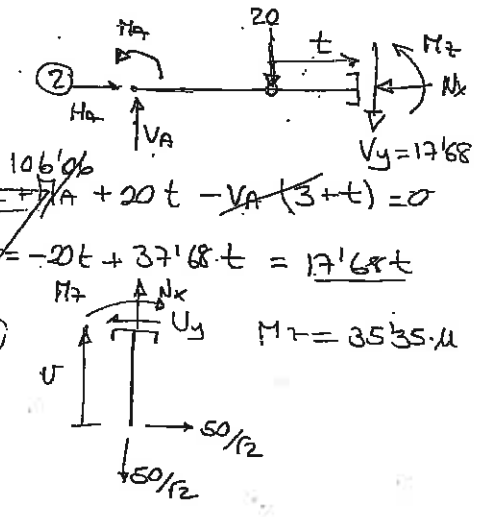 20
MA
t
Mz
2
HA
Nx
VA
Vy = 17'68
106'06
+ MA + 20t - VA (3+t) = 0
= -20t + 37'68·t = 17'68t
Mz
Nx
Vy
Mz = 35'35·u
v
50/√2
50/√2